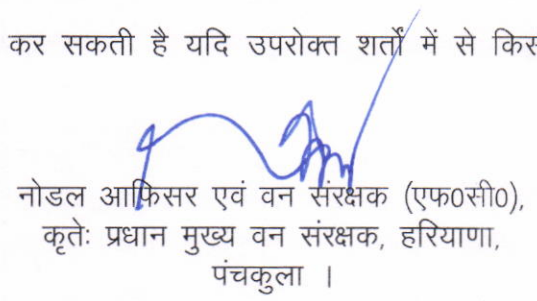 कर सकती है यदि उपरोक्त शर्तों में से किस
नोडल आफिसर एवं वन संरक्षक (एफ0सी0),
कृतेः प्रधान मुख्य वन संरक्षक, हरियाणा,
पंचकुला ।